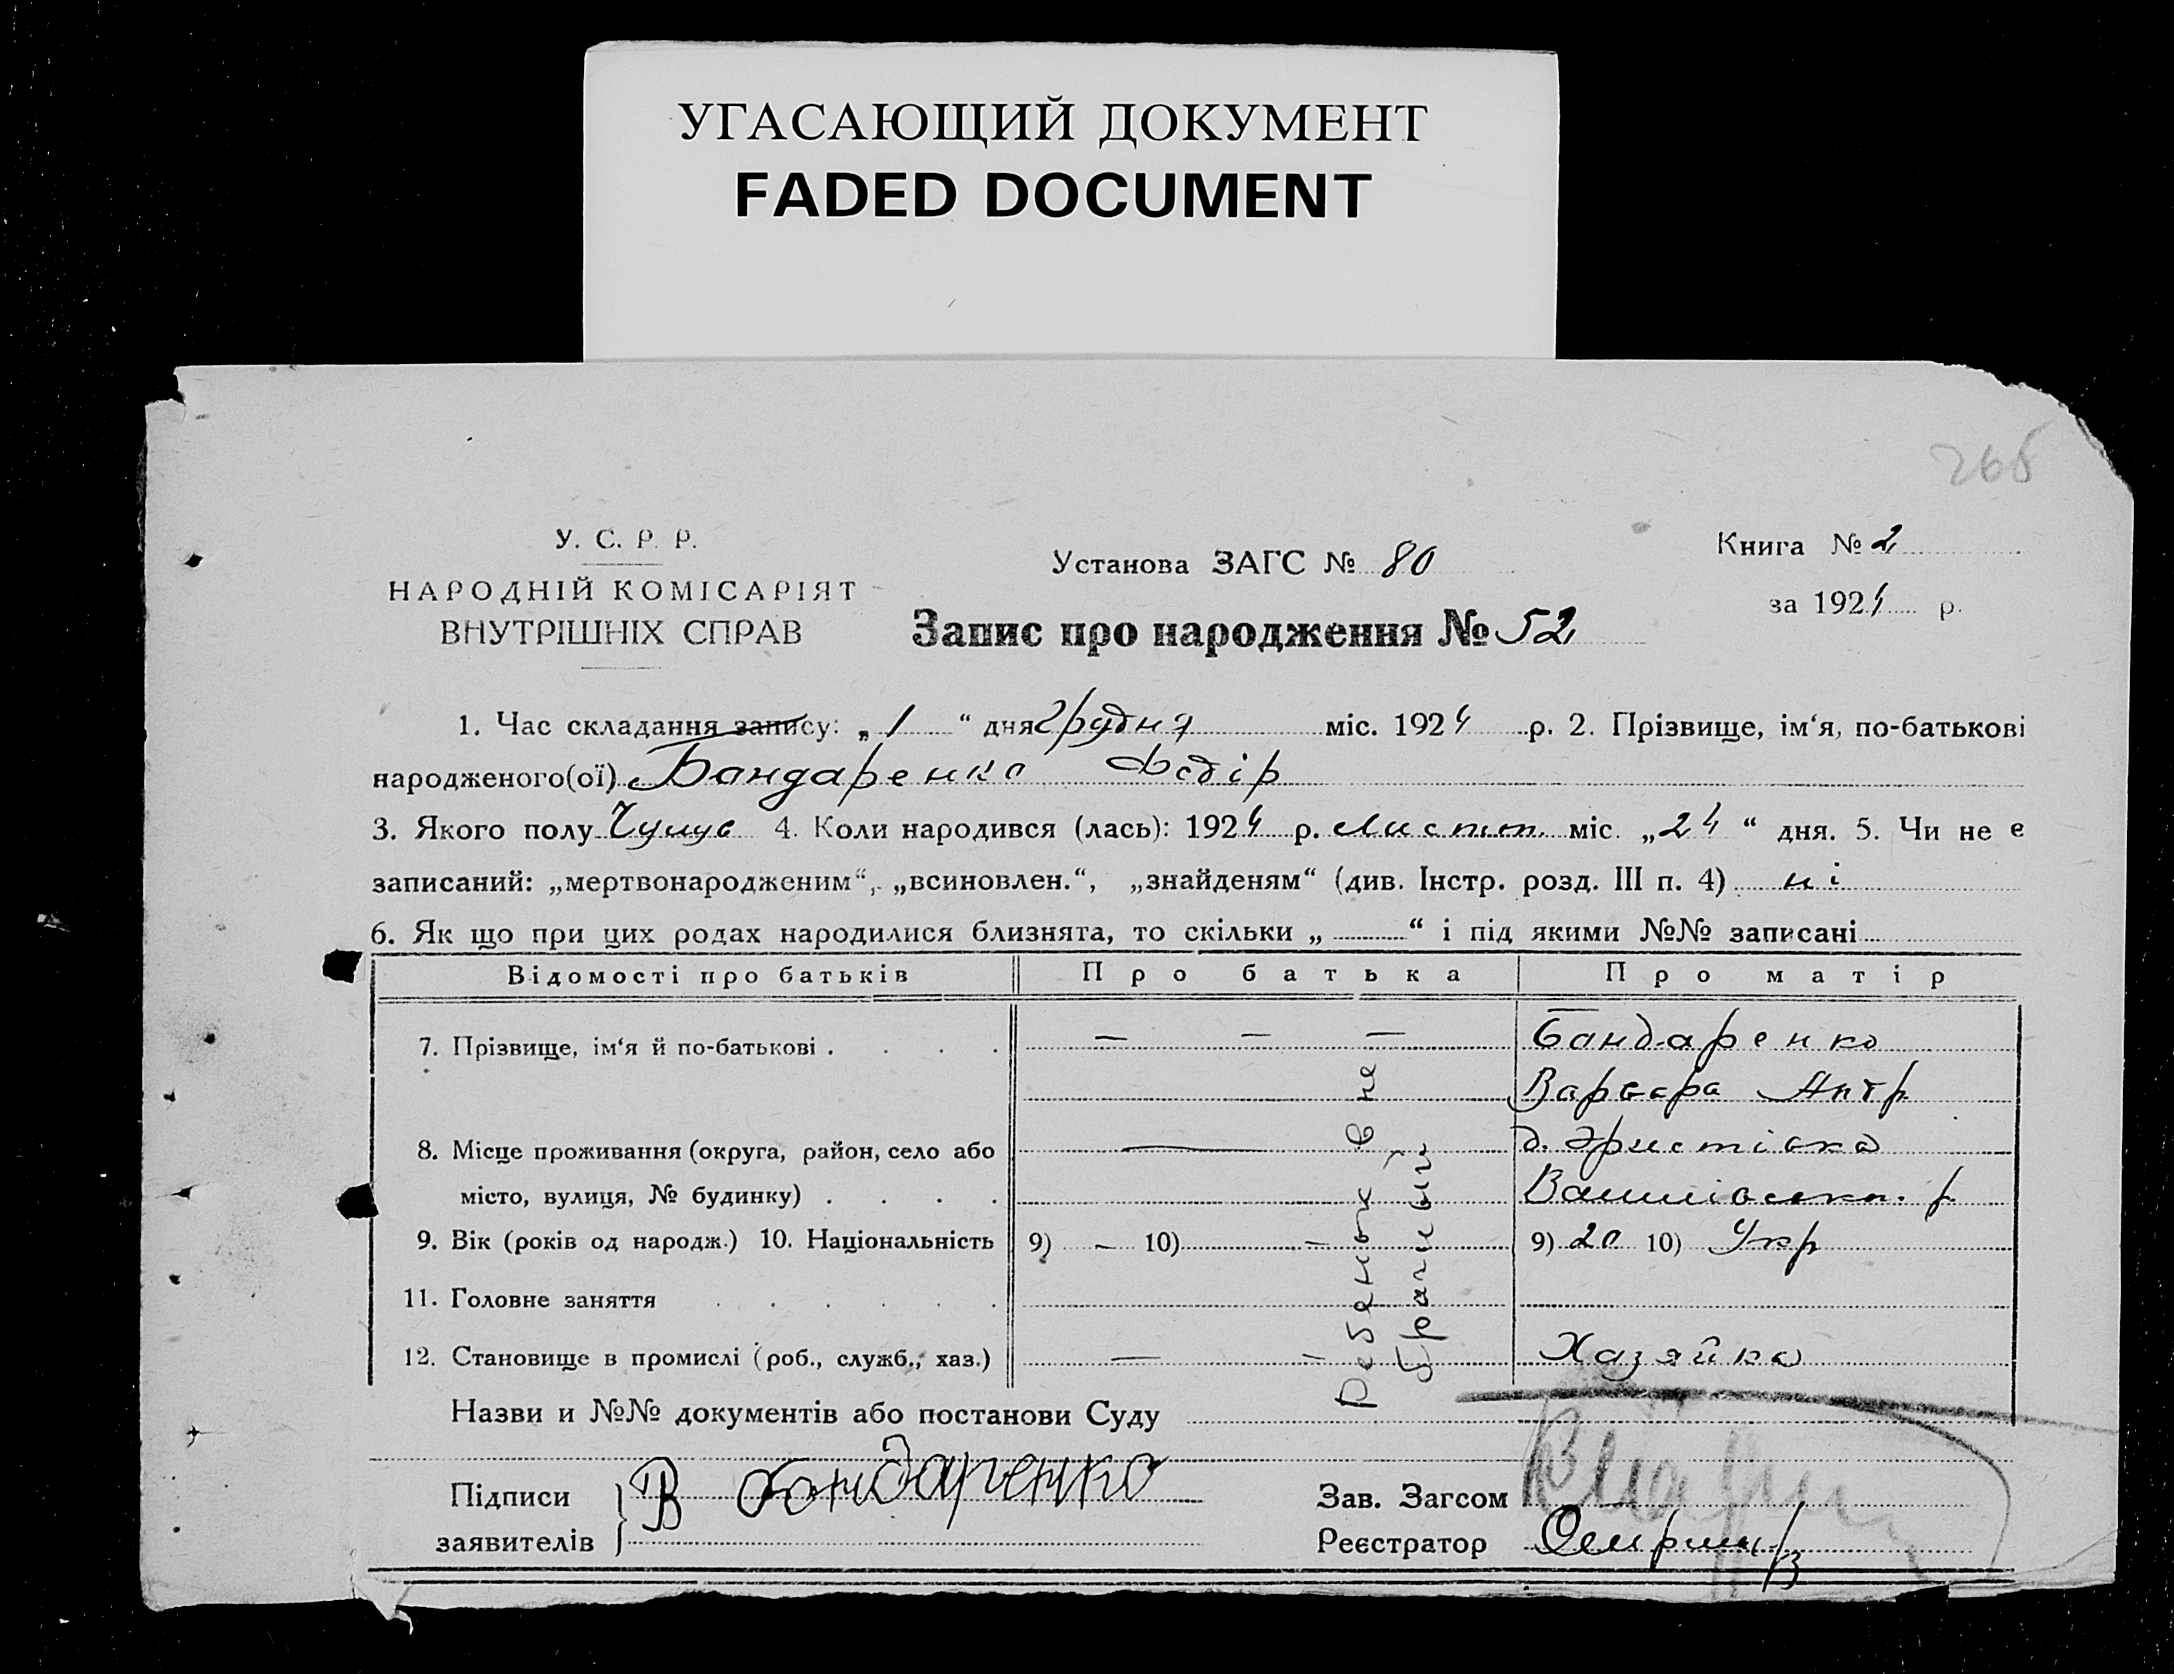 УГАСАЮЩИЙ ДОКУМЕНТ
FADED DOCUMENT
265
У. С. Р. Р.
НАРОДНІЙ КОМІСАРІЯТ
ВНУТРІШНІХ СПРАВ
Установа ЗАГС № 80
Запис про народження № 52
Книга № 2
за 1924 р.
1. Час складання запису: „ 1 “ дня Грудня міс. 1924 р. 2. Прізвище, ім‘я, по-батькові
народженого(ої) Бондаренко Федір
3. Якого полу 4. Коли народився (лась): 1924 р. Листп. міс. „24“ дня. 5. Чи не є
записаний: „мертвонародженим“, „всиновлен.“, „знайденям“ (див. Інстр. розд. III п. 4) ні
6. Як що при цих родах народилися близнята, то скільки „ “ і під якими №№ записані
Відомості про батьків Про батька Про матір
7. Прізвище, ім‘я й по-батькові . . . . — — — Бондаренко
Варвара
8. Місце проживання (округа, район, село або — д.
місто, вулиця, № будинку) . . . . р.
9. Вік (років од народж.) 10. Національність 9) — 10) — 9) 20 10) Укр
11. Головне заняття . . . . . .
12. Становище в промислі (роб., служб., хаз.) — — Хазяйка
Ребенок в не
брачный
Назви и №№ документів або постанови Суду
Підписи В Бондаренко
заявителів
Зав. Загсом
Реєстратор